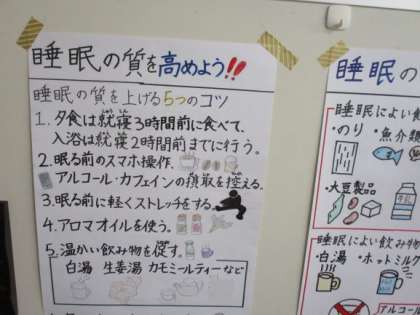 睡眠の質を高めよう!!
睡眠の質を上げる5つのコツ
1. 夕食は就寝3時間前に食べて、
入浴は就寝2時間前までに行う。
2. 眠る前のスマホ操作、
アルコール・カフェインの摂取を控える。
3. 眠る前に軽くストレッチをする。
4. アロマオイルを使う。
5. 温かい飲み物を促す。
白湯 生姜湯 カモミールティーなど
睡眠の
睡眠によい食
・のり ・魚介類
・大豆製品
牛乳
睡眠によい飲み物
・白湯 ・ホットミルク
アルコール